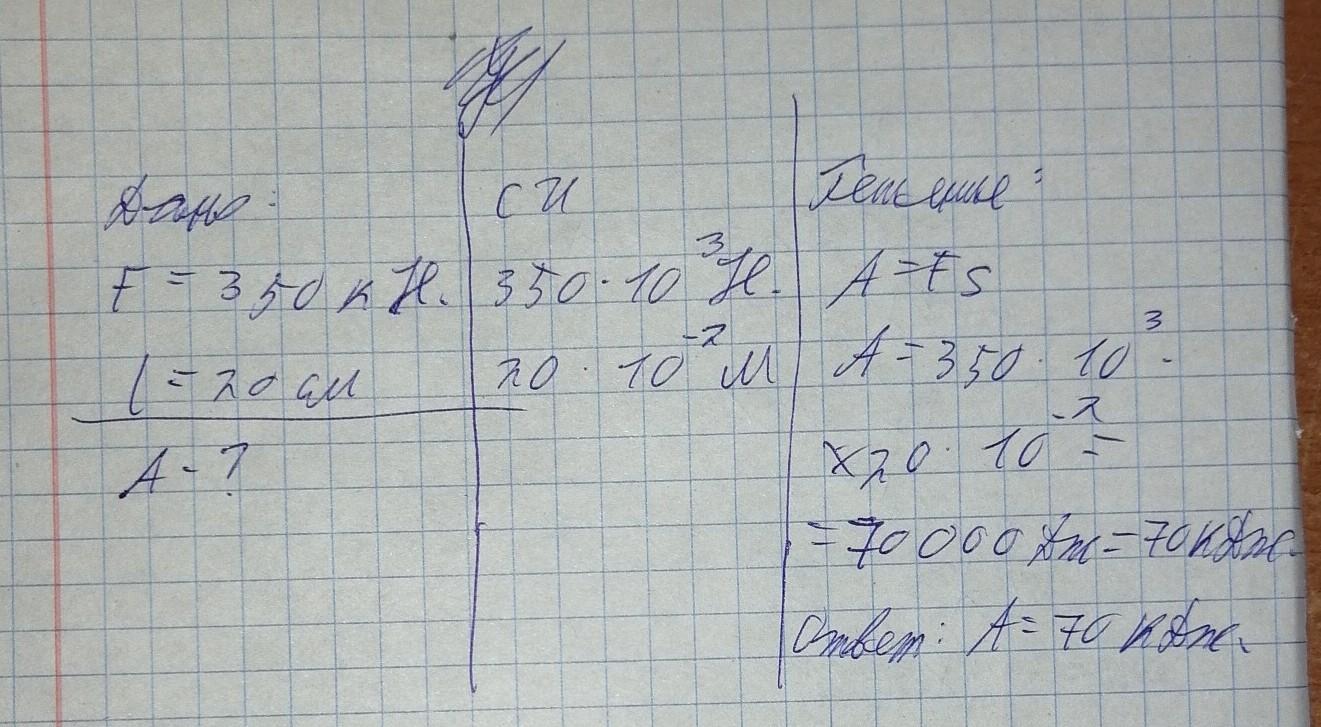 Дано:
F = 350 кН.
l = 20 см
A - ?
СИ
350 · 10³ Н.
20 · 10⁻² м
Решение:
A = Fs
A = 350 · 10³ ·
× 20 · 10⁻² =
= 70000 Дж = 70 кДж.
Ответ: A = 70 кДж.